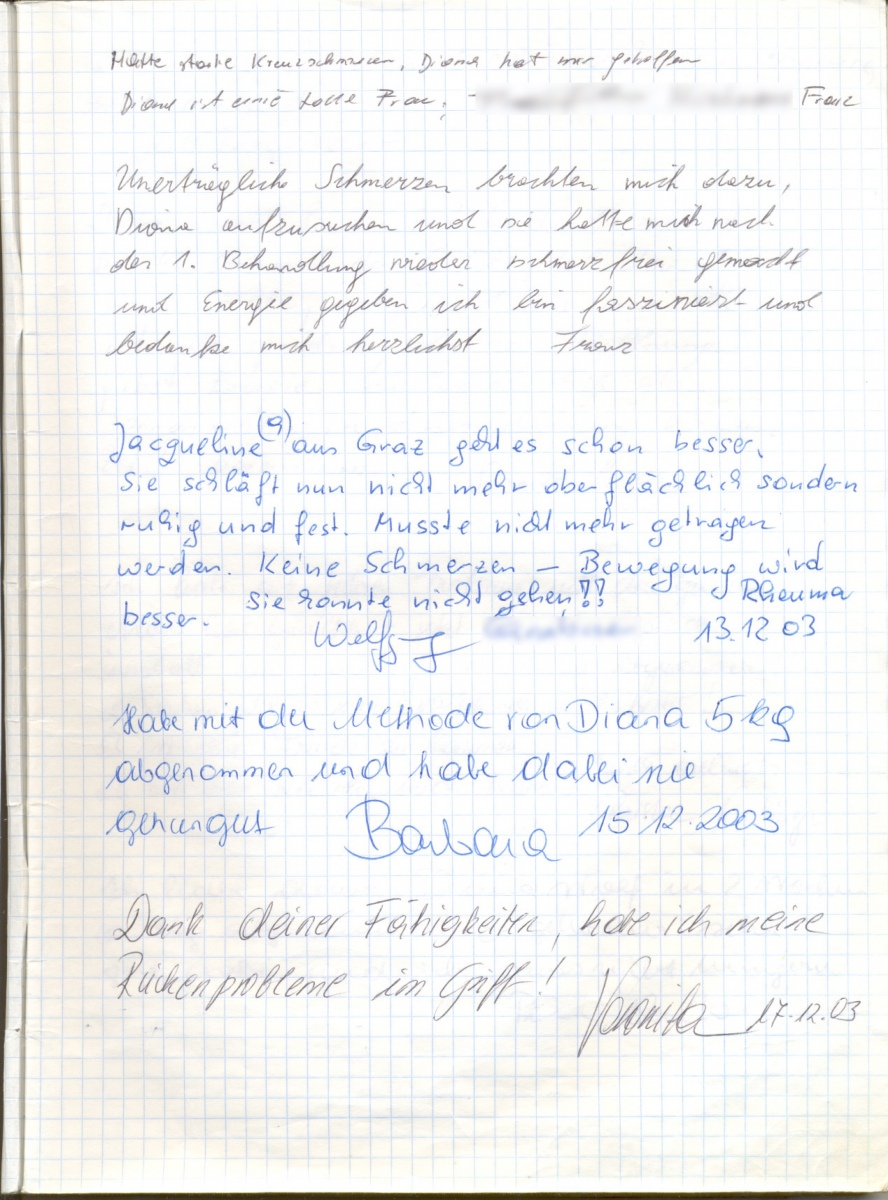 Hatte starke Kreuzschmerzen, Diana hat mir geholfen
Diana ist eine tolle Frau, Franz
Unerträgliche Schmerzen brachten mich dazu,
Diana aufzusuchen und sie hatte mich nach
der 1. Behandlung wieder schmerzfrei gemacht
und Energie gegeben ich bin fasziniert und
bedanke mich herzlichst Franz
Jacqueline (9) aus Graz geht es schon besser.
Sie schläft nun nicht mehr oberflächlich sondern
ruhig und fest. Musste nicht mehr getragen
werden. Keine Schmerzen – Bewegung wird
besser. Sie konnte nicht gehen!!! Rheuma
13.12 03
Habe mit der Methode von Diana 5 kg
abgenommen und habe dabei nie
gehungert Barbara 15.12.2003
Dank deiner Fähigkeiten, habe ich meine
Rückenprobleme im Griff!
Veronika 17.12.03